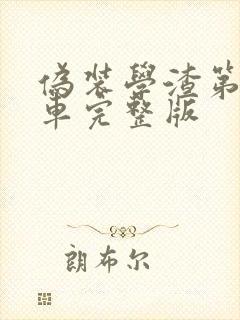 偽裝學渣第
車完整版
朗布尔